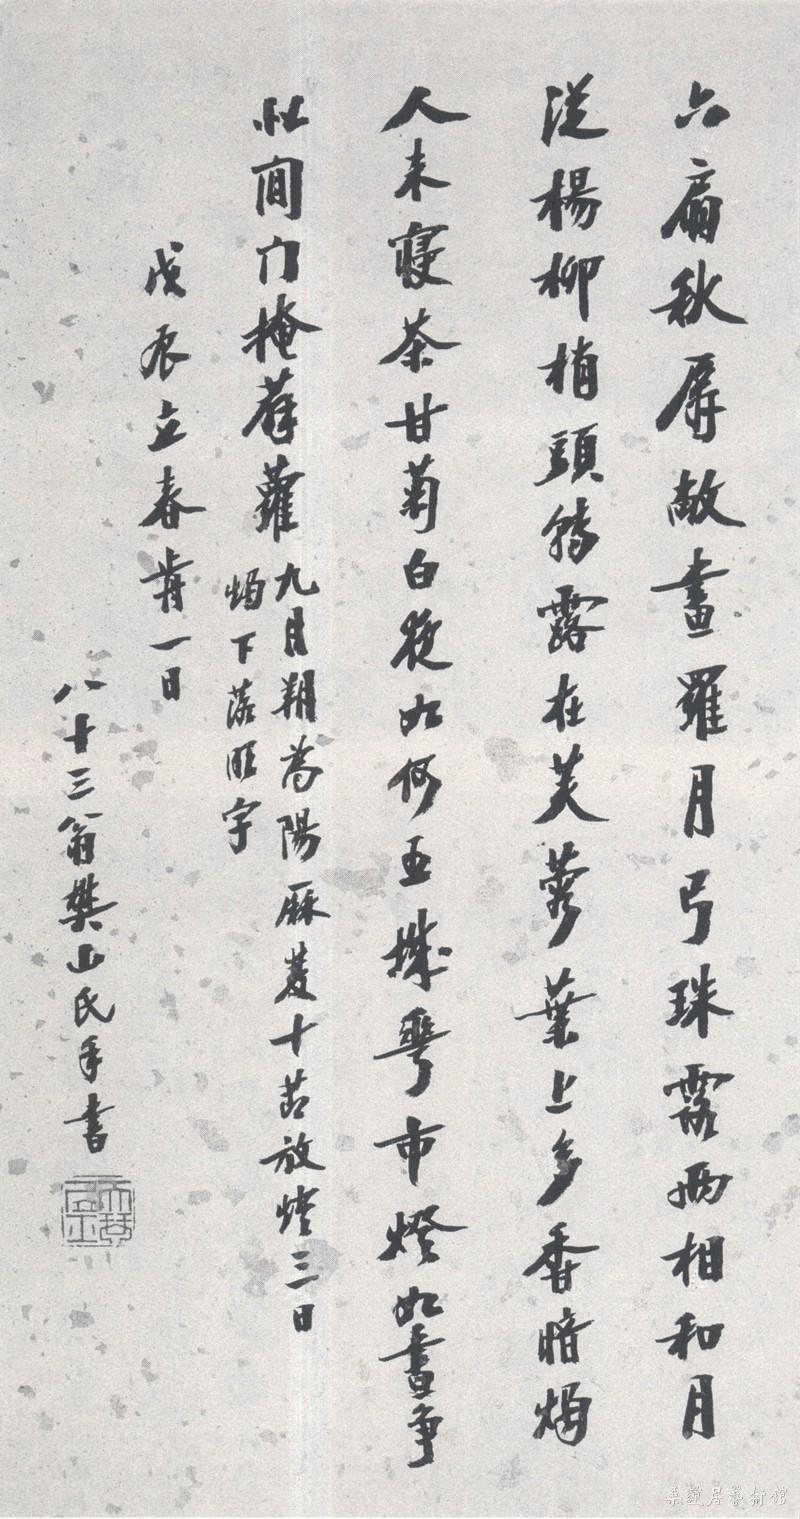 六扇秋屏敞畫羅月弓珠露兩相和月
從楊柳梢頭轉露在芙蓉葉上多香暗燭
人未寢茶甘菊白夜如何五城市燈如晝爭
似閒門掩薜蘿
九月朔為陽厤雙十節放燈三日
燭下落明字
戊辰立春前一日
八十三翁樊山氏手書
天琴居士
桑蓮居藝術館